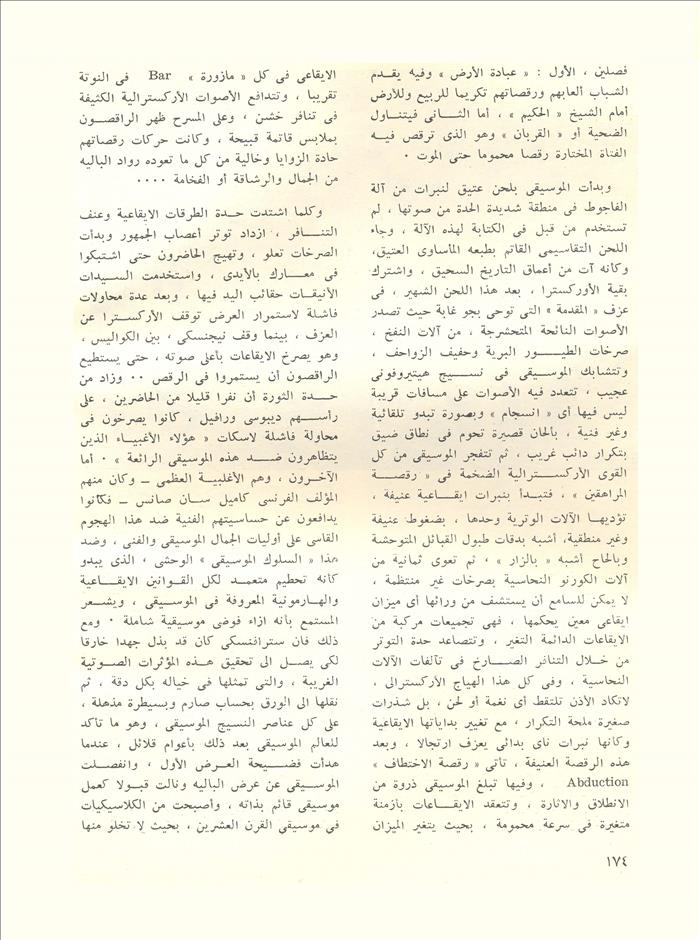 فصلين ، الأول : « عبادة الأرض » وفيه يقدم
الشباب ألعابهم ورقصاتهم تكريما للربيع وللأرض
أمام الشيخ « الحكيم » ، أما الثانى فيتناول
الضحية أو « القربان » وهو الذى ترقص فيه
الفتاة المختارة رقصا محموما حتى الموت ٠
وبدأت الموسيقى بلحن عتيق لنبرات من آلة
الفاجوط فى منطقة شديدة الحدة من صوتها ، لم
تستخدم من قبل فى الكتابة لهذه الآلة ، وجاء
اللحن التقاسيمى القاتم بطبعه المأساوى العتيق،
وكأنه آت من أعماق التاريخ السحيق ، واشترك
بقية الأوركسترا ، بعد هذا اللحن الشهير ، فى
عزف « المقدمة » التى توحى بجو غابة حيث تصدر
الأصوات النائحة المتحشرجة ، من آلات النفخ ،
صرخات الطيور البرية وحفيف الزواحف ،
وتتشابك الموسيقى فى نسيج هيتيروفونى
عجيب ، تتعدد فيه الأصوات على مسافات قريبة
ليس فيها أى « انسجام » وبصورة تبدو تلقائية
وغير فنية ، بألحان قصيرة تحوم فى نطاق ضيق
بتكرار دائب غريب ، ثم تتفجر الموسيقى من كل
القوى الأركسترالية الضخمة فى « رقصة
المراهقين » ، فتبدأ بنبرات ايقاعية عنيفة ،
تؤديها الآلات الوترية وحدها ، بضغوط عنيفة
وغير منطقية، أشبه بدقات طبول القبائل المتوحشة
وبالحاح أشبه « بالزار » ، ثم تعوى ثمانية من
آلات الكورنو النحاسية بصرخات غير منتظمة ،
لا يمكن للسامع أن يستشف من ورائها أى ميزان
ايقاعى معين يحكمها ، فهى تجميعات مركبة من
الايقاعات الدائمة التغير ، وتتصاعد حدة التوتر
من خلال التنافر الصارخ فى تآلفات الآلات
النحاسية ، وفى كل هذا الهياج الأركسترالى ،
لاتكاد الأذن تلتقط أى نغمة أو لحن ، بل شذرات
صغيرة ملحة التكرار ، مع تغيير بداياتها الايقاعية
وكأنها نبرات ناى بدائى يعزف ارتجالا ، وبعد
هذه الرقصة العنيفة ، تأتى « رقصة الاختطاف »
Abduction ، وفيها تبلغ الموسيقى ذروة من
الانطلاق والاثارة ، وتتعقد الايقاعات بأزمنة
متغيرة فى سرعة محمومة ، بحيث يتغير الميزان
الايقاعى فى كل « مازورة » Bar فى النوتة
تقريبا ، وتتدافع الأصوات الأركسترالية الكثيفة
فى تنافر خشن ، وعلى المسرح ظهر الراقصون
بملابس قاتمة قبيحة ، وكانت حركات رقصاتهم
حادة الزوايا وخالية من كل ما تعوده رواد الباليه
من الجمال والرشاقة أو الفخامة ٠٠٠٠
وكلما اشتدت حدة الطرقات الايقاعية وعنف
التنافر ، ازداد توتر أعصاب الجمهور وبدأت
الصرخات تعلو ، وتهيج الحاضرون حتى اشتبكوا
فى معارك بالأيدى ، واستخدمت السيدات
الأنيقات حقائب اليد فيها ، وبعد عدة محاولات
فاشلة لاستمرار العرض توقف الأركسترا عن
العزف ، بينما وقف نيجنسكى ، بين الكواليس ،
وهو يصرخ الايقاعات بأعلى صوته ، حتى يستطيع
الراقصون أن يستمروا فى الرقص ٠٠ وزاد من
حدة الثورة أن نفرا قليلا من الحاضرين ، على
رأسهم ديبوسى ورافيل ، كانوا يصرخون فى
محاولة فاشلة لاسكات « هؤلاء الأغبياء الذين
يتظاهرون ضد هذه الموسيقى الرائعة » ٠ أما
الآخرون ، وهم الأغلبية العظمى ــ وكان منهم
المؤلف الفرنسى كاميل سان صانس ــ فكانوا
يدافعون عن حساسيتهم الفنية ضد هذا الهجوم
القاسى على أوليات الجمال الموسيقى والفنى ، وضد
هذا « السلوك الموسيقى » الوحشى ، الذى يبدو
كأنه تحطيم متعمد لكل القوانين الايقاعية
والهارمونية المعروفة فى الموسيقى ، ويشعر
المستمع بأنه ازاء فوضى موسيقية شاملة ٠ ومع
ذلك فان سترافنسكى كان قد بذل جهدا خارقا
لكى يصل الى تحقيق هذه المؤثرات الصوتية
الغريبة ، والتى تمثلها فى خياله بكل دقة ، ثم
نقلها الى الورق بحساب صارم وبسيطرة مذهلة ،
على كل عناصر النسيج الموسيقى ، وهو ما تأكد
للعالم الموسيقى بعد ذلك بأعوام قلائل ، عندما
هدأت فضيحة العرض الأول ، وانفصلت
الموسيقى عن عرض الباليه ونالت قبولا كعمل
موسيقى قائم بذاته ، وأصبحت من الكلاسيكيات
فى موسيقى القرن العشرين ، بحيث لا تخلو منها
١٧٤